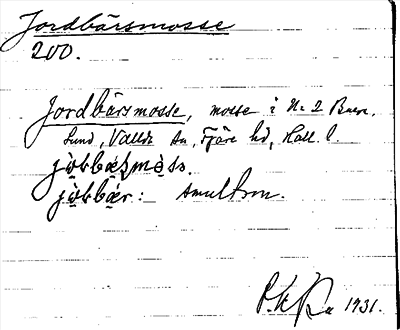 Jordbärsmosse
200.
Jordbärsmosse, mosse i N:o 2 Buera,
Lund, Vallda sn, Fjäre hd, Hall. l.
jòrbæsmòsə.
jòrbær: smultron.
1931.